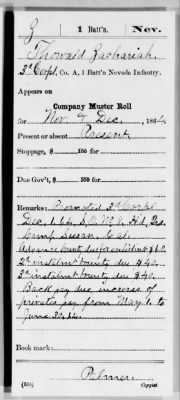 Z 1 Batt'n. Nev.
Thowald Zachariah
3d Corpl, Co. A, 1 Batt'n Nevada Infantry.
Appears on
Company Muster Roll
for Nov. & Dec., 1864
Present or absent Present
Stoppage, $ 100 for
Due Gov't, $ 100 for
Remarks: Promoted 3d Corpl
Dec. 1. 64. S.O. No. 2. Hd. Qrs.
Camp Susan, Cal.
Advance bounty due for enlistment $60.
2d instalment bounty due $40.
3d instalment bounty due $40.
Back pay due increase of
privates pay from May 1. to
June 30. 64.
Book mark:
Palmer
(358) Copyist